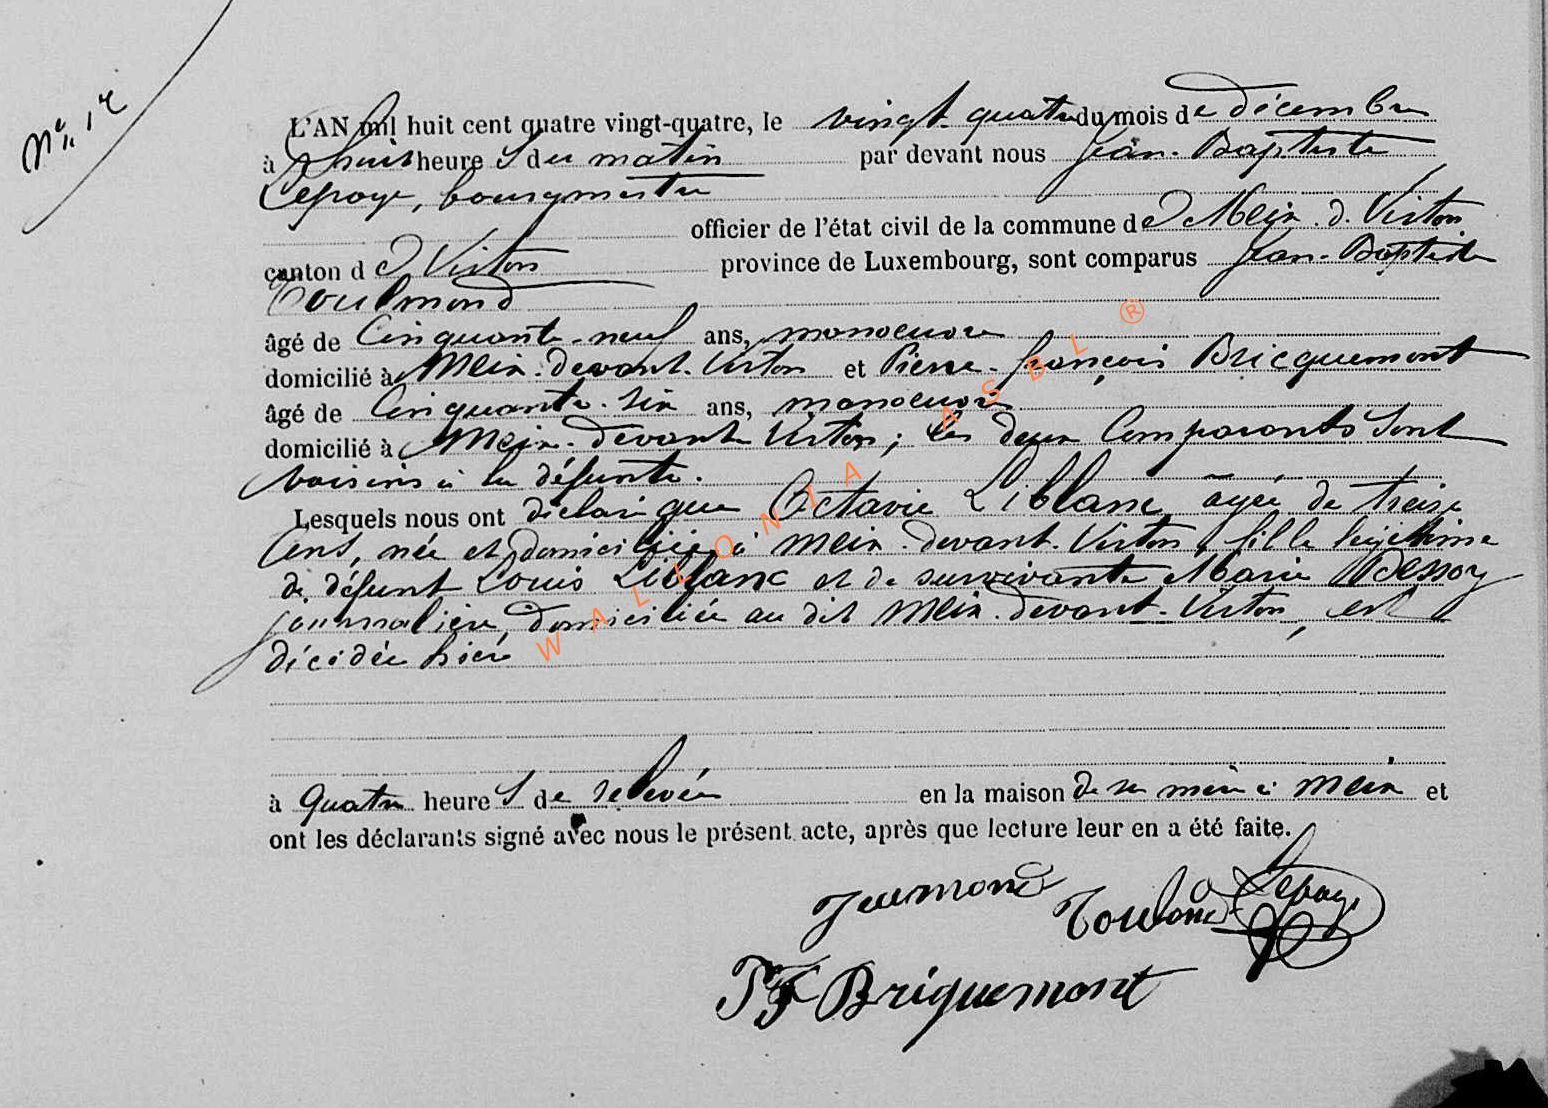 N° 12
L'AN mil huit cent quatre vingt-quatre, le vingt-quatre du mois de décembre
à huit heures du matin par devant nous Jean-Baptiste
Lepage, bourgmestre
officier de l'état civil de la commune de Meix-d-Virton
canton de Virton province de Luxembourg, sont comparus Jean-Baptiste
Toulmond
âgé de cinquante-neuf ans, manoeuvre
domicilié à Meix-devant-Virton et Pierre-françois Bricquemont
âgé de cinquante-six ans, manoeuvre
domicilié à Meix-devant Virton; les deux comparants sont
voisins à la défunte.
Lesquels nous ont déclaré que Octavie Liblanc, âgée de treize
ans, née et domiciliée à Meix-devant-Virton, fille légitime
de défunt Louis Liblanc et de survivante Marie Dessoy
journalière, domiciliée au dit Meix-devant-Virton, est
décédée hier
à quatre heures de relevée en la maison de sa mère à Meix et
ont les déclarants signé avec nous le présent acte, après que lecture leur en a été faite.
Toulmond Lepage
PF Briquemont
WALLONIA ASBL ®